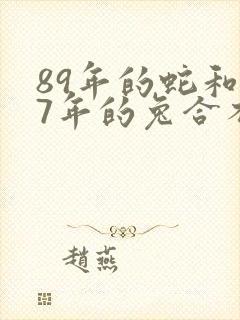 89年的蛇和
7年的兔合不
趙燕